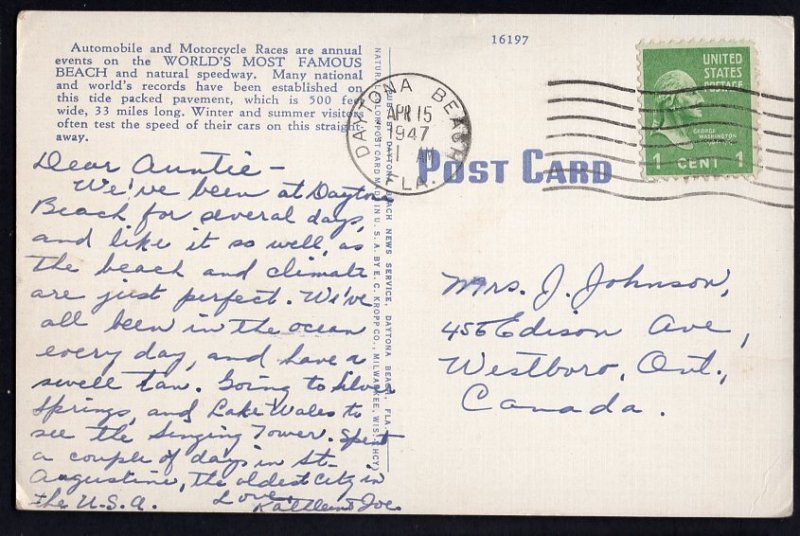 16197
Automobile and Motorcycle Races are annual
events on the WORLD'S MOST FAMOUS
BEACH and natural speedway. Many national
and world's records have been established on
this tide packed pavement, which is 500 feet
wide, 33 miles long. Winter and summer visitors
often test the speed of their cars on this straight-
away.
DAYTONA BEACH
APR 15
1947
1 AM
FLA.
UNITED
STATES
POSTAGE
GEORGE
WASHINGTON
1 CENT 1
POST CARD
Dear Auntie -
We've been at Daytona
Beach for several days,
and like it so well, as
the beach and climate
are just perfect. We've
all been in the ocean
every day, and have a
swell tan. Going to Silver
Springs, and Lake Wales to
see the Singing Tower. Spent
a couple of days in St.
Augustine, the oldest city in
the U.S.A. Love,
Kathleen & Joe
BEACH NEWS SERVICE, DAYTONA BEACH, FLA.
NATURAL COLOR POST CARD MADE IN U. S. A. BY E. C. KROPP CO., MILWAUKEE, WIS. (HCY)
Mrs. J. Johnson,
456 Edison Ave,
Westboro, Ont.,
Canada.